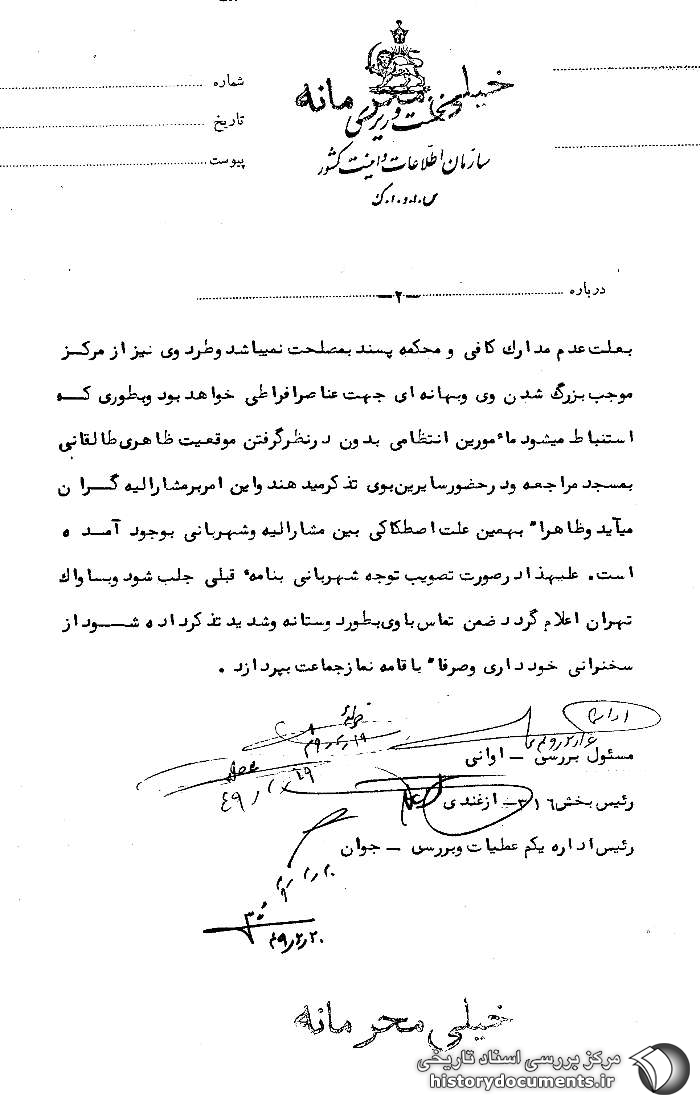 خیلی محرمانه
نخست وزیری
سازمان اطلاعات و امنیت کشور
س.ا.و.ا.ک
شماره
تاریخ
پیوست
درباره
ـ۲ـ
بعلت عدم مدارك كافی و محكمه پسند بمصلحت نمیباشد وطرد وی نیز از مركز
موجب بزرگ شدن وی وبهانه ای جهت عناصرافراطی خواهد بود وبطوری كه
استنباط میشود مأمورین انتظامی بدون درنظرگرفتن موقعیت ظاهری طالقانی
بمسجد مراجعه ودرحضورسایرین بوی تذكرمیدهند واین امربرمشارالیه گران
میآید وظاهراً بهمین علت اصطكاكی بین مشارالیه وشهربانی بوجود آمده
است. علیهذا درصورت تصویب توجه شهربانی بنامه قبلی جلب شود وبساواك
تهران اعلام گردد ضمن تماس باوی بطوردوستانه وشدید تذكرداده شود از
سخنرانی خودداری وصرفاً باقامه نمازجماعت بپردازد.
مسئول بررسی ـ اوانی
۴۹/۲/۱۹
رئیس بخش ۳۱۶ ـ ازغندی
رئیس اداره یكم عملیات وبررسی ـ جوان
۴۹/۲/۲۰
خیلی محرمانه
مرکز بررسی اسناد تاریخی
historydocuments.ir